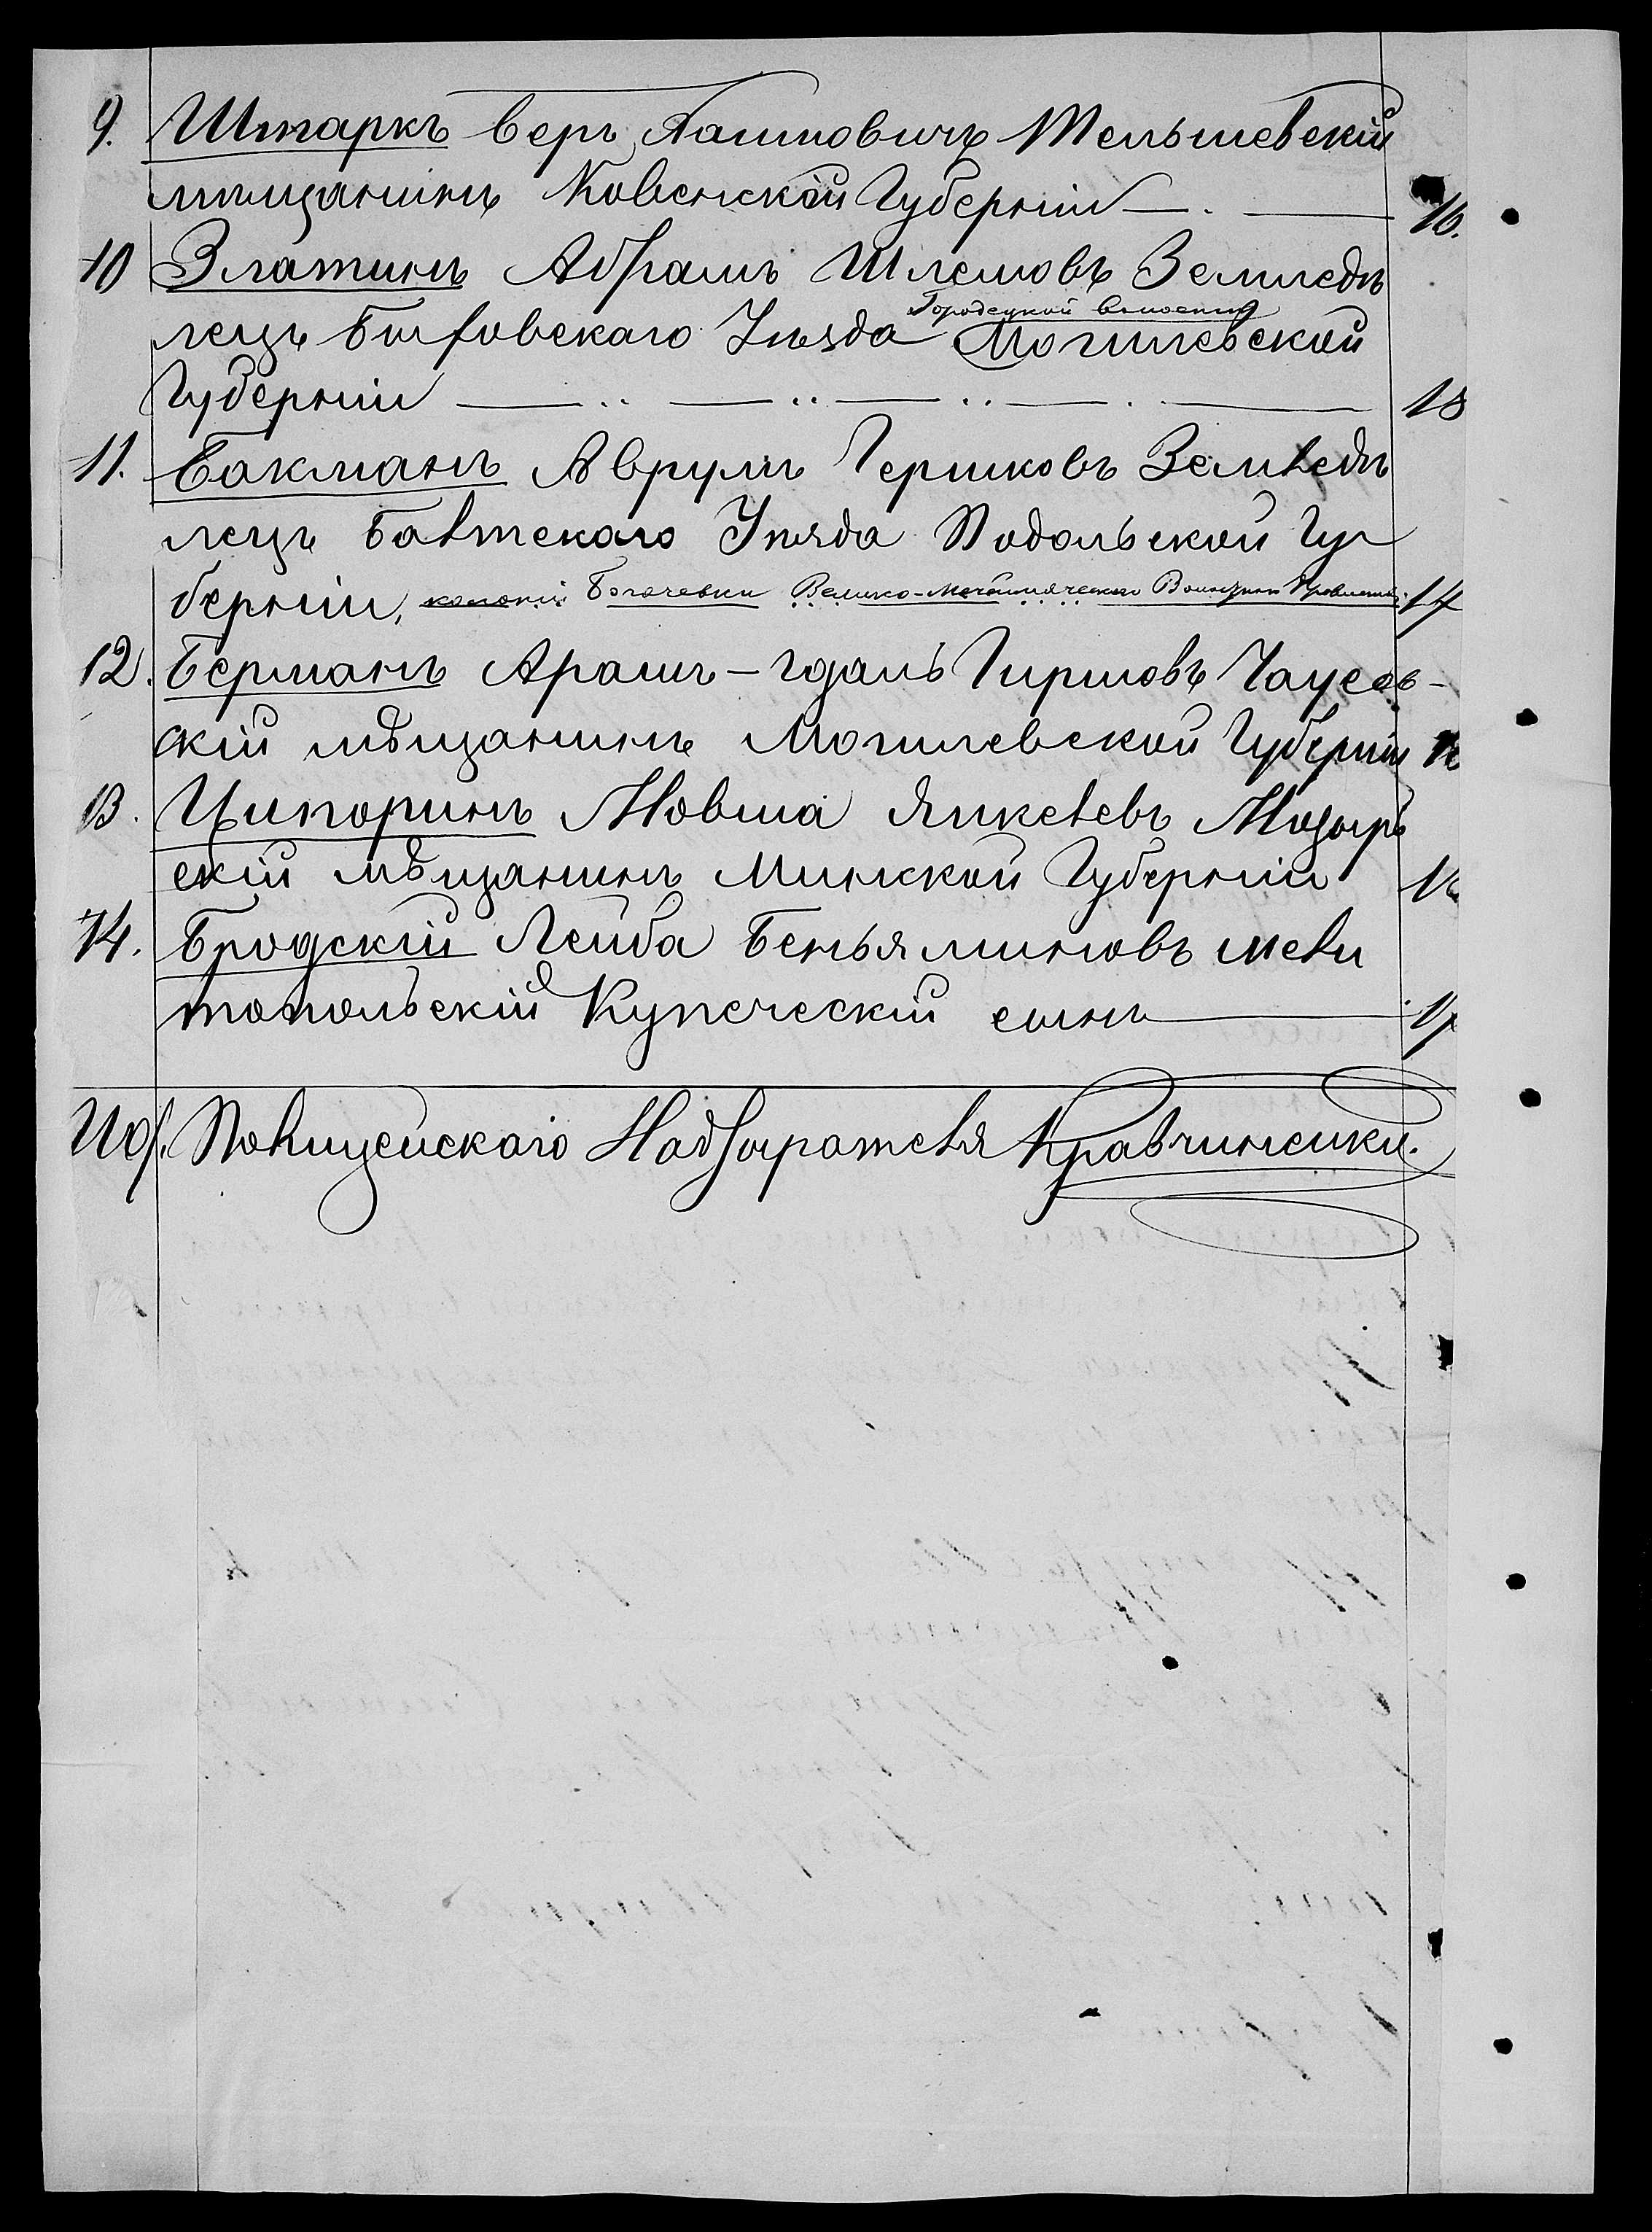 9. Штаркъ Беръ Таинновичъ Тельшевскій
мѣщанинъ Ковенской Губерніи — . — 16.
10 Златинъ Абрамъ Шлемовъ Земледѣ
Городецкой волости
лецъ Быховскаго Уѣзда Могилевской
Губерніи — .. — .. — .. — . — 18
11. Бакманъ Аврумъ Гершковъ Земледѣ
лецъ Балтскаго Уѣзда Подольской Гу
берніи, колоніи Богачевки Велико- 17
12. Берманъ Арамъ - Іудаль Гиршовъ Чаусов-
скій мѣщанинъ Могилевской Губерніи
13. Ципоринъ Мовша Янкелевъ Мозырь
скій мѣщанинъ Минской Губерніи
14. Бродскій Лейба Беньяминовъ мели
топольскій Купеческій сынъ — 17
Иоб. Полицейскаго Надзирателя Кравчинскій.